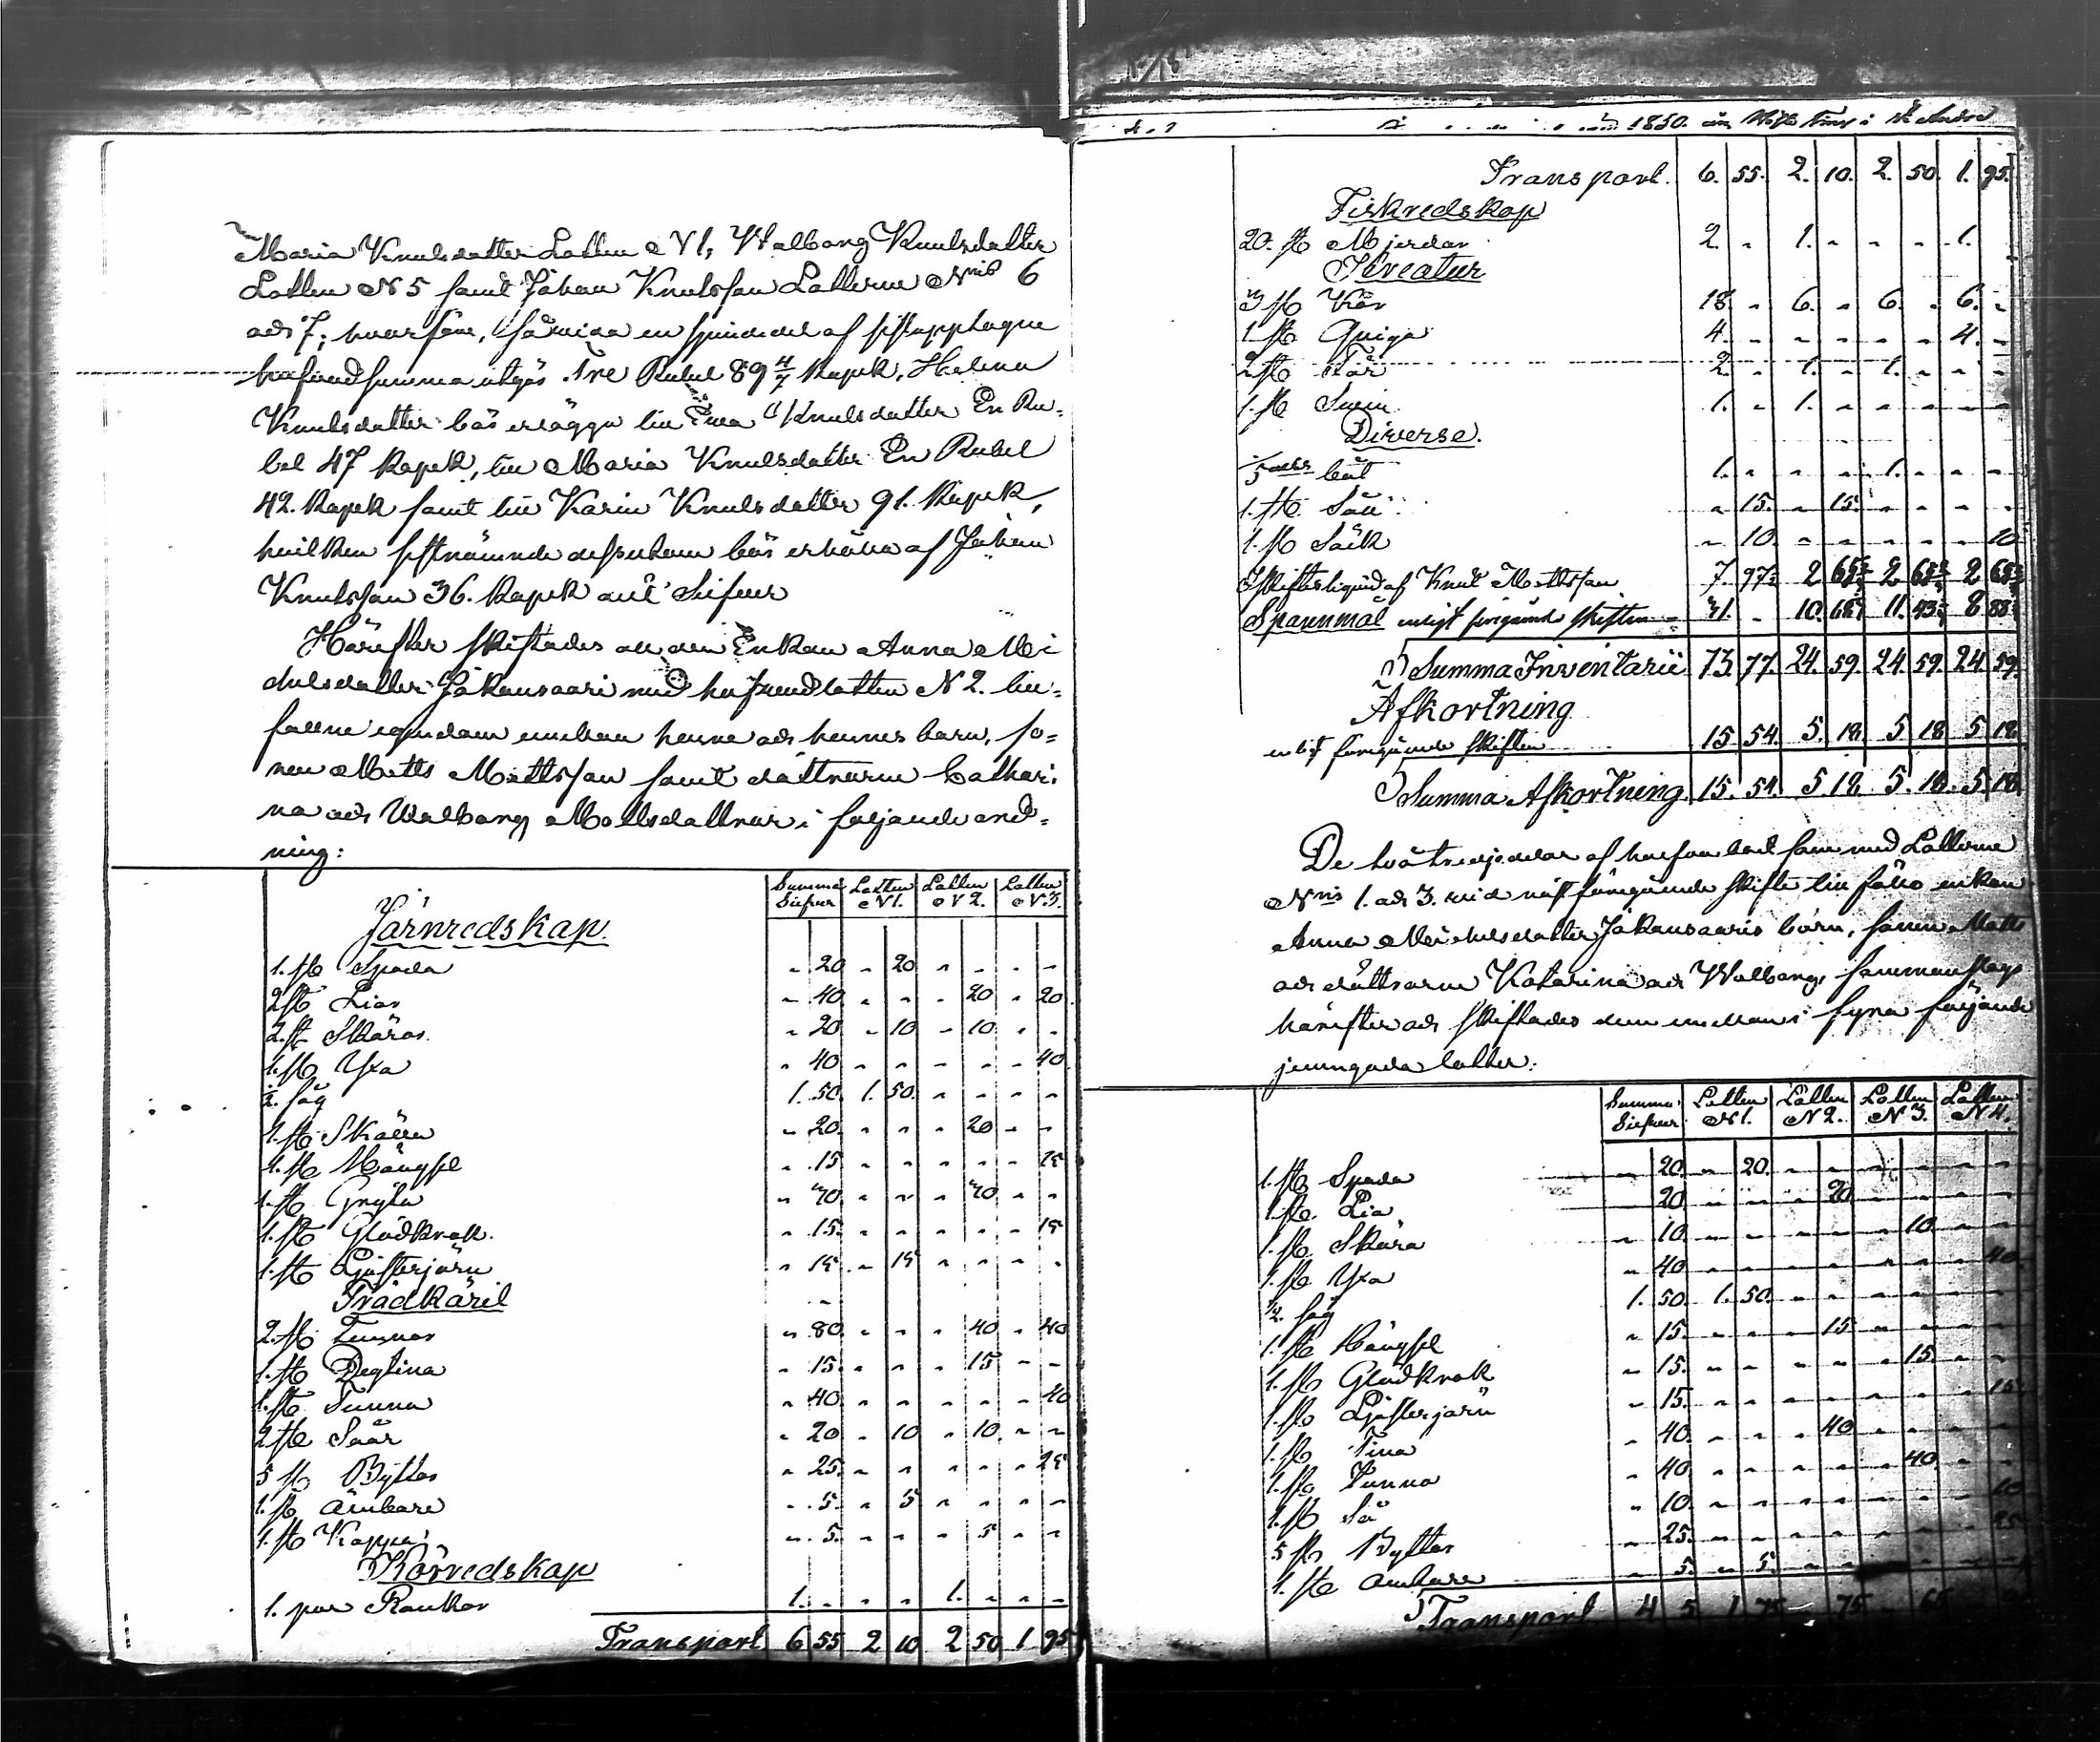 Maria Knutsdatter Lotten N 1, Walborg Knutsdatter
Lotten N 5 samt Johan Knutsson Lotterne Nris 6
och 7; hvarföre, såvida en sjundedel af sistupptagne
hufvudsumma utgör Tre Rubel 89 4/7 Kopek, Helena
Knutsdatter bör erlägga till Ewa Knutsdatter En Ru=
bel 47 Kopek, till Maria Knutsdatter En Rubel
42. Kopek samt till Karin Knutsdatter 91. Kopek,
hvilken sistnämnde dessutom bör erhålla af Johan
Knutsson 36. Kopek allt Silfver
Härefter skiftades all den Enkan Anna Mi
chelsdatter Jokansaari med hufvudlotten N 2. till=
fallne egendom emellan henne och hennes barn, so=
nen Matts Mattsson samt döttrarne Cathari
na och Walborg Mattsdöttrar i följande ord=
ning:
Summa Silfver Lotten N 1. Lotten N 2. Lotten N 3.
Järnredskap
1. st Spada " 20 " 20 " " " "
2 st Liar " 40 " " " 20 " 20
2. st Skäror " 20 " 10 " 10 " "
1. st Yxa " 40 " " " " " 40
1/2 såg 1. 50. 1. 50. " " " "
1. st Skälla " 20. " " " 20 " "
1. st Hängsel " 15 " " " " " 15
1. st Gryta " 70. " " " 70. " "
1. st Glödkrok " 15. " " " " " 15
1. st Ljusterjärn " 15 " 15 " " " "
Trädkäril
2. st Tunnor " 80. " " " 40 " 40
1. st Degtina " 15. " " " 15 " "
1. st Tunna " 40. " " " " " 40
2 st Såar " 20 " 10 " 10 " "
5 st Byttor " 25. " " " " " 25
1. st Ämbare " 5. " 5 " " " "
1. st Kappa " 5. " " " 5 " "
Körredskap
1. par Rankor 1. " " " 1. " " "
Transport 6 55 2 10 2 50 1 95
1850.
Transport. 6. 55. 2. 10. 2. 50. 1. 95.
Fiskredskap
20. st Mjerdar 2. " 1. " " " 1. "
Kreatur
3 st Kor 18. " 6. " 6. " 6. "
1. st Qviga 4. " " " " " 4. "
2 st Får 2. " 1. " 1. " " "
1. st Svin 1. " 1. " " " " "
Diverse.
båt 1. " " " 1. " " "
1. st Såll " 15. " 15. " " " "
1. st Säck " 10. " " " " " 10
Skiftesliquid af Knut Mattsson 7. 97 2 65 2 65 2 65
Spannmål enligt föregående skiften 31. " 10. 68 11. 43 8 88
Summa Inventarii 73. 77. 24. 59. 24. 59. 24 59.
Afkortning
enligt föregående skiften 15 54. 5. 18. 5 18 5 18
Summa Afkortning 15. 54. 5 18. 5. 18. 5. 18
De två tredjedelar af hufvudbol som med Lotterne
Nris 1. och 3. vid näst föregående skifte till föllo enkan
Anna Michelsdatter Jokansaaris barn, sonen Matts
och döttrarne Katarina och Walborg, sammanslogs
härefter och skiftades dem emellan i fyra följande
jemngoda lotter:
Summa Silfver Lotten N 1. Lotten N 2. Lotten N 3. Lotten N 4.
1. st Spada " 20. " 20. " " " " " "
1. st Lia " 20 " " " 20 " " " "
1. st Skära " 10. " " " " " 10. " "
1. st Yxa " 40. " " " " " " " 40.
1/2 såg 1. 50. 1. 50. " " " " " "
1. st Hängsel " 15. " " " 15 " " " "
1. st Glödkrok " 15. " " " " " 15. " "
1. st Ljusterjärn " 15. " " " " " " " 15
1. st Tina " 40. " " " 40 " " " "
1. st Tunna " 40 " " " " " 40. " "
1. st Så " 10. " " " " " " " 10
5 st Byttor " 25. " " " " " " " 25
1. st Ämbare " 5. " 5. " " " " " "
Transport 4 5 1 75 " 75 " 65